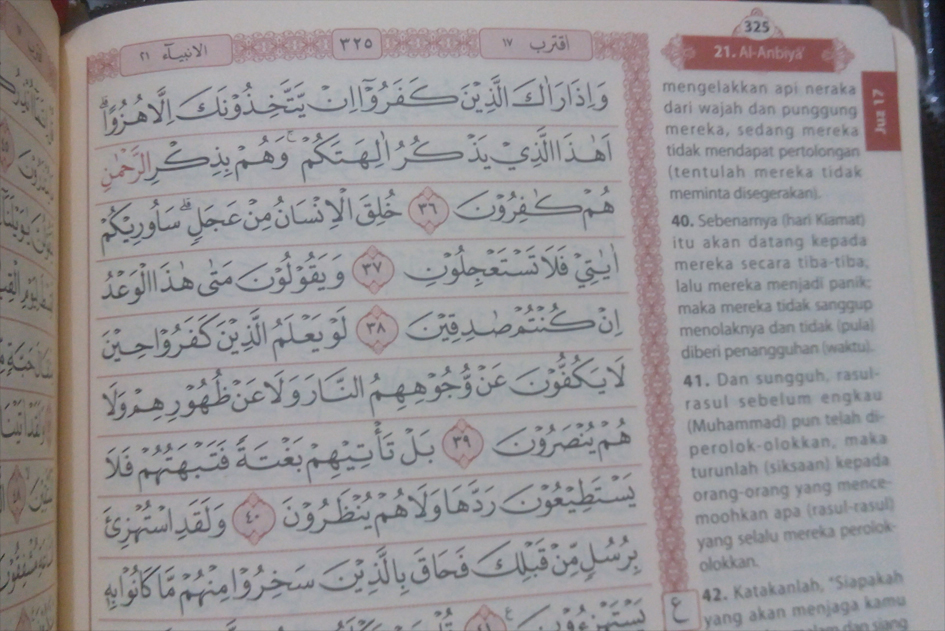 الانبيآء ٢١
٣٢٥
اقترب ١٧
وَاِذَا رَاٰكَ الَّذِيْنَ كَفَرُوْٓا اِنْ يَّتَّخِذُوْنَكَ اِلَّا هُزُوًاۗ
اَهٰذَا الَّذِيْ يَذْكُرُ اٰلِهَتَكُمْۚ وَهُمْ بِذِكْرِ الرَّحْمٰنِ
هُمْ كٰفِرُوْنَ ٣٦ خُلِقَ الْاِنْسَانُ مِنْ عَجَلٍۗ سَاُورِيْكُمْ
اٰيٰتِيْ فَلَا تَسْتَعْجِلُوْنِ ٣٧ وَيَقُوْلُوْنَ مَتٰى هٰذَا الْوَعْدُ
اِنْ كُنْتُمْ صٰدِقِيْنَ ٣٨ لَوْ يَعْلَمُ الَّذِيْنَ كَفَرُوْا حِيْنَ
لَا يَكُفُّوْنَ عَنْ وُّجُوْهِهِمُ النَّارَ وَلَا عَنْ ظُهُوْرِهِمْ وَلَا
هُمْ يُنْصَرُوْنَ ٣٩ بَلْ تَأْتِيْهِمْ بَغْتَةً فَتَبْهَتُهُمْ فَلَا
يَسْتَطِيْعُوْنَ رَدَّهَا وَلَا هُمْ يُنْظَرُوْنَ ٤٠ وَلَقَدِ اسْتُهْزِئَ
بِرُسُلٍ مِّنْ قَبْلِكَ فَحَاقَ بِالَّذِيْنَ سَخِرُوْا مِنْهُمْ مَّا كَانُوْا بِهٖ
يَسْتَهْزِءُوْنَ ٤١
ع
325
21. Al-Anbiyā'
Juz 17
mengelakkan api neraka
dari wajah dan punggung
mereka, sedang mereka
tidak mendapat pertolongan
(tentulah mereka tidak
meminta disegerakan).
40. Sebenarnya (hari Kiamat)
itu akan datang kepada
mereka secara tiba-tiba,
lalu mereka menjadi panik;
maka mereka tidak sanggup
menolaknya dan tidak (pula)
diberi penangguhan (waktu).
41. Dan sungguh, rasul-
rasul sebelum engkau
(Muhammad) pun telah di-
perolok-olokkan, maka
turunlah (siksaan) kepada
orang-orang yang mence-
moohkan apa (rasul-rasul)
yang selalu mereka perolok-
olokkan.
42. Katakanlah, "Siapakah
yang akan menjaga kamu
malam dan siang